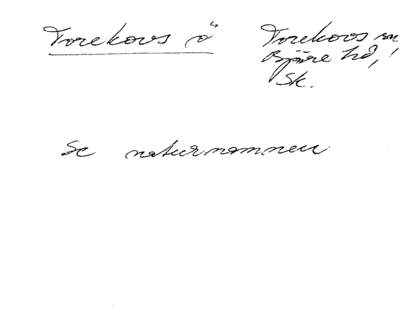 Torekovs ö
Torekovs sn
Bjäre hd,
Sk.
Se naturnamnen